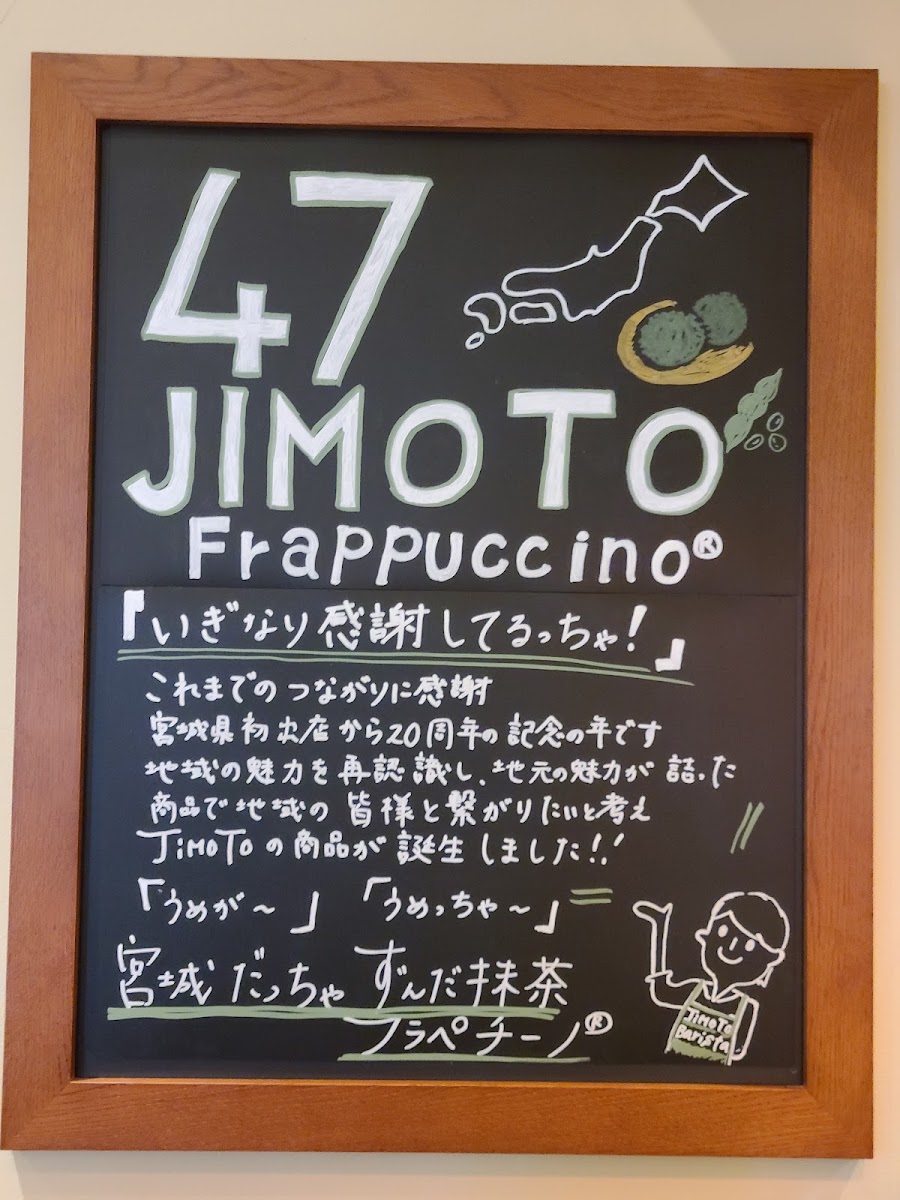 47
JIMOTO
Frappuccino®
『いぎなり感謝してるっちゃ!』
これまでのつながりに感謝
宮城県初出店から20周年の記念の年です
地域の魅力を再認識し、地元の魅力が詰った
商品で地域の皆様と繋がりたいと考え
JIMOTOの商品が誕生しました!!
「うめが～」「うめっちゃ～」
宮城だっちゃ ずんだ抹茶
フラペチーノ®
JIMOTO
Barista